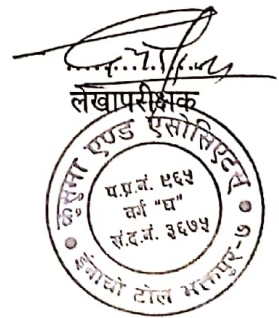 लेखापरीक्षक
कुसुमा एण्ड एसोसिएट्स
प.प्र.नं. ९६५
वर्ग "घ"
सं.द.नं. ३६७५
ईनाचो टोल भक्तपुर-७